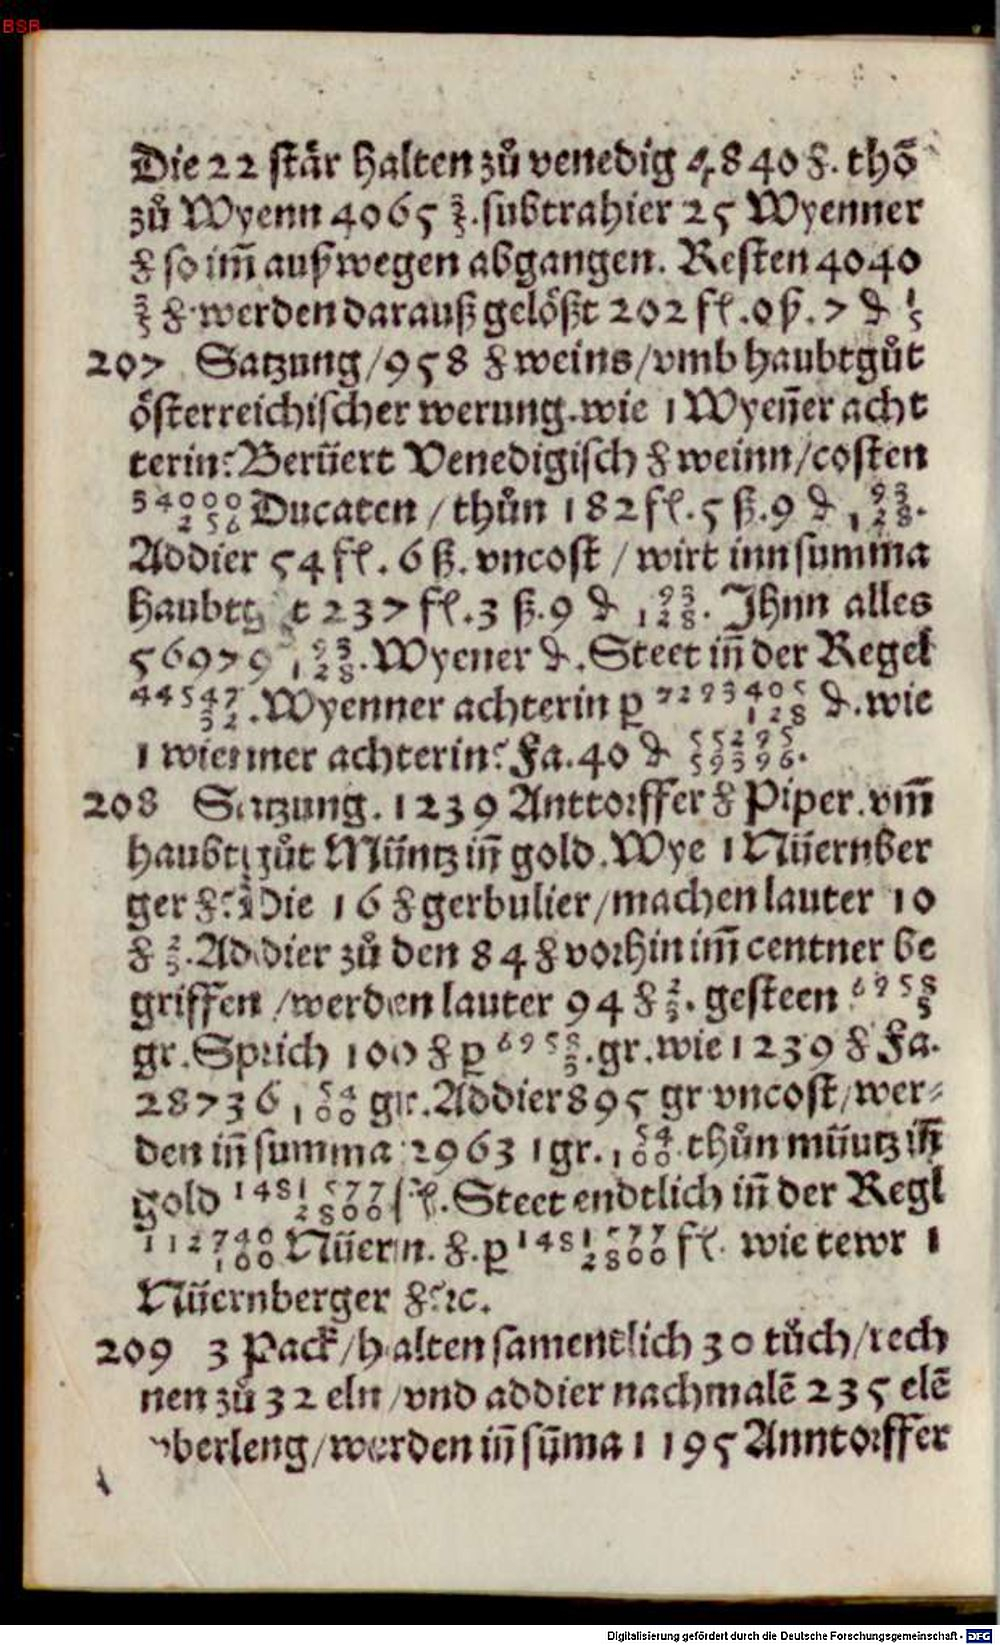 BSB
Die 22 stär halten zů venedig 4840 ℔. thō
zů Wyenn 4065 3/5. subtrahier 25 Wyenner
℔ so im̄ außwegen abgangen. Resten 4040
3/5 ℔ werden darauß gelößt 202 fl. 0 ß. 7 ₰ 1/5
207 Satzung/958 ℔ weins/vmb haubtgůt
österreichischer werung. wie 1 Wyen̄er acht
terin? Berüert Venedigisch ℔ weinn/costen
34000/256 Ducaten/thůn 182 fl. 5 ß. 9 ₰ 93/128.
Addier 54 fl. 6 ß. vncost/wirt inn summa
haubtg t 237 fl. 3 ß. 9 ₰ 93/128. Ihnn alles
56979 93/128. Wyener ₰. Steet in̄ der Regel
44547/32. Wyenner achterin p 7293405/128 ₰. wie
1 wienner achterin? Fa. 40 ₰ 55295/59396.
208 Satzung. 1239 Anttorffer ℔ Piper. vm̄
haubtgůt Müntz in̄ gold. Wye 1 Nüernber
ger ℔? Die 16 ℔ gerbulier/machen lauter 10
℔ 2/3. Addier zů den 84 ℔ vorhin im̄ centner be
griffen/werden lauter 94 ℔ 2/3. gesteen 6958/3
gr. Sprich 100 ℔ p 6958/3. gr. wie 1239 ℔ Fa.
28736 54/100 gr. Addier 895 gr vncost/wer⸗
den in̄ summa 29631 gr. 54/100. thůn müntz in̄
gold 1481577/2800 fl. Steet endtlich in̄ der Regl
112740/100 Nüern. ℔. p 1481577/2800 fl. wie tewr 1
Nüernberger ℔? ꝛc.
209 3 Pack/halten samentlich 30 tůch/rech
nen zů 32 eln/vnd addier nachmalē 235 elē
vberleng/werden in̄ sum̄a 1195 Anntorffer
Digitalisierung gefördert durch die Deutsche Forschungsgemeinschaft - DFG